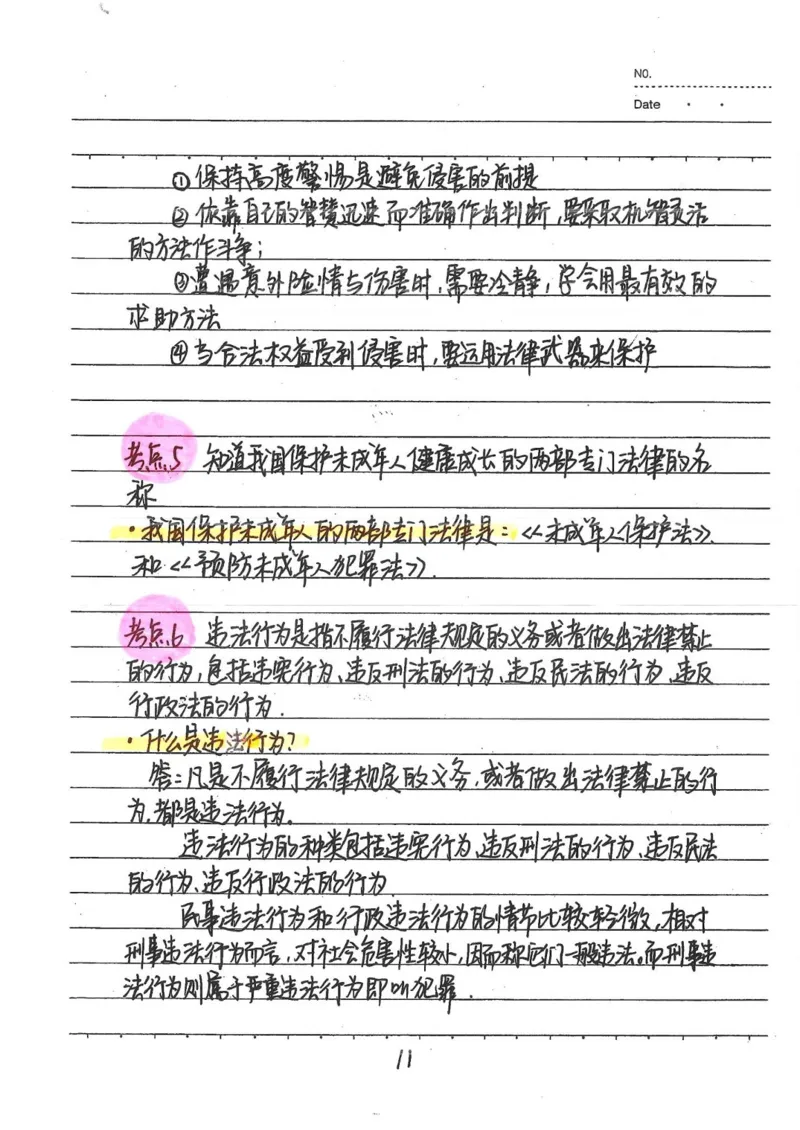 NO.
Date
①保持高度警惕是避免侵害的前提
②依靠自己的智慧迅速而准确作出判断,要采取机智灵活
的方法作斗争;
③遭遇意外险情与伤害时,需要冷静,学会用最有效的
求助方法
④当合法权益受到侵害时,要运用法律武器来保护
考点5 知道我国保护未成年人健康成长的两部专门法律的名
称
·我国保护未成年人的两部专门法律是:《未成年人保护法》.
和《预防未成年人犯罪法》.
考点6 违法行为是指不履行法律规定的义务或者做出法律禁止
的行为,包括违宪行为、违反刑法的行为、违反民法的行为、违反
行政法的行为.
·什么是违法行为?
答:凡是不履行法律规定的义务,或者做出法律禁止的行
为,都是违法行为.
违法行为的种类包括违宪行为、违反刑法的行为、违反民法
的行为、违反行政法的行为.
民事违法行为和行政违法行为的情节比较轻微,相对
刑事违法行为而言,对社会危害性较小,因而称它们一般违法。而刑事违
法行为则属于严重违法行为即叫犯罪.
11